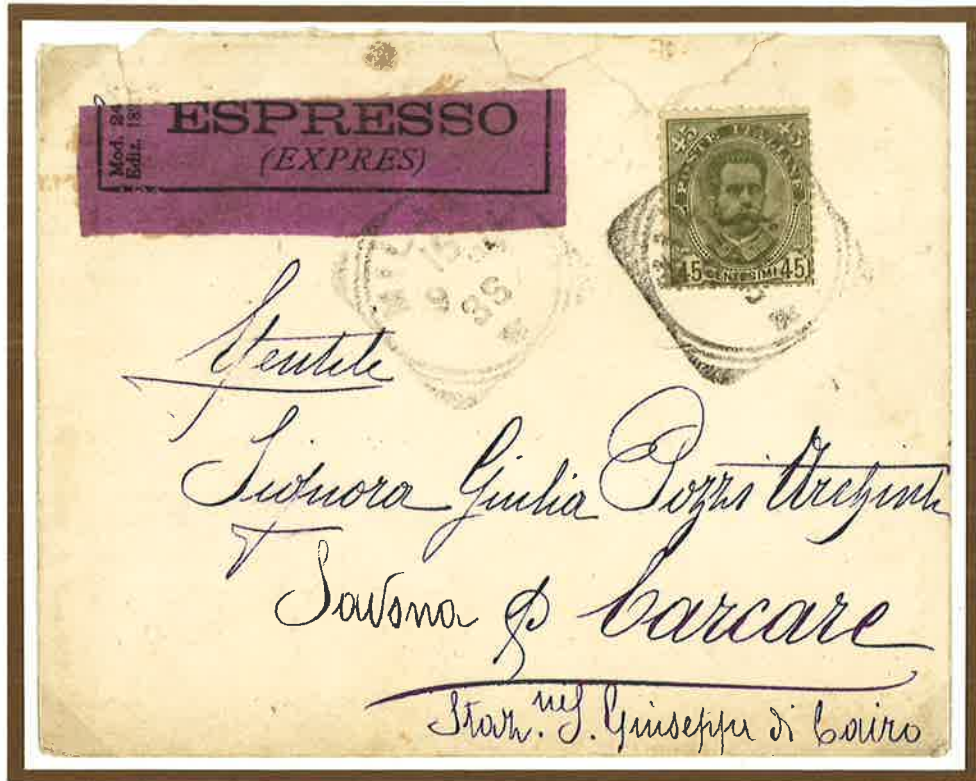 Mod. 24
Ediz. 189
ESPRESSO
(EXPRES)
45 45
POSTE ITALIANE
45 CENTESIMI 45
Gentile
Signora Giulia Pozzi Archinti
Savona p Carcare
Staz.ne S. Giuseppe di Cairo